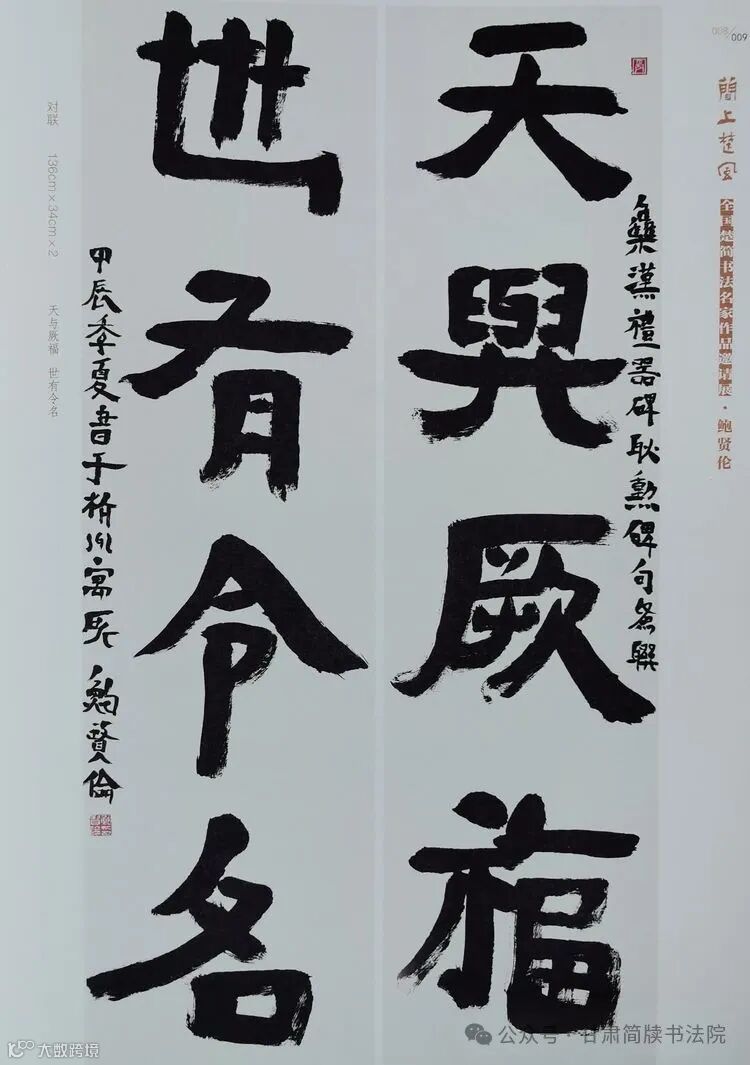 008/009
簡上楚風
全国楚简书法名家作品邀请展·鲍贤伦
集漢禮器碑耿勳碑句
天與厥福
世有令名
甲辰季夏書于杭州寓所 鮑賢倫
对联 136cm×34cm×2 天与厥福 世有令名
公众号·甘肃简牍书法院
大数跨境